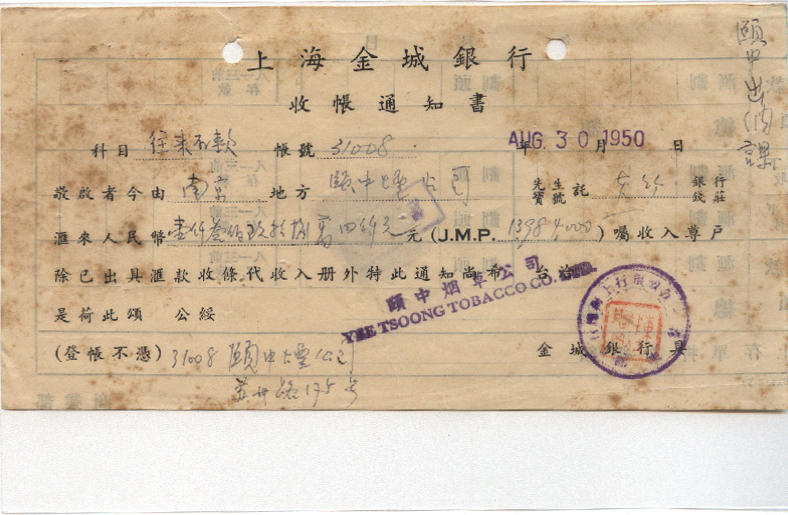 上海金城銀行
收帳通知書
科目 往來存款 帳號 31008 AUG. 30 1950 年 月 日
敬啟者今由 南京 地方 頤中煙公司 先生寶號 託 銀行錢莊
滙來人民幣壹仟叁佰玖拾捌萬四仟元 元 (J.M.P. 13984000) 囑收入尊戶
除已出具滙款收條代收入册外特此通知尚布 台洽
是荷此頌 公綏
(登帳不憑) 金城銀行具
31008 頤中煙公司
蘇州路175号
頤中烟草公司
YEE TSOONG TOBACCO CO. LTD.
頤中出納課